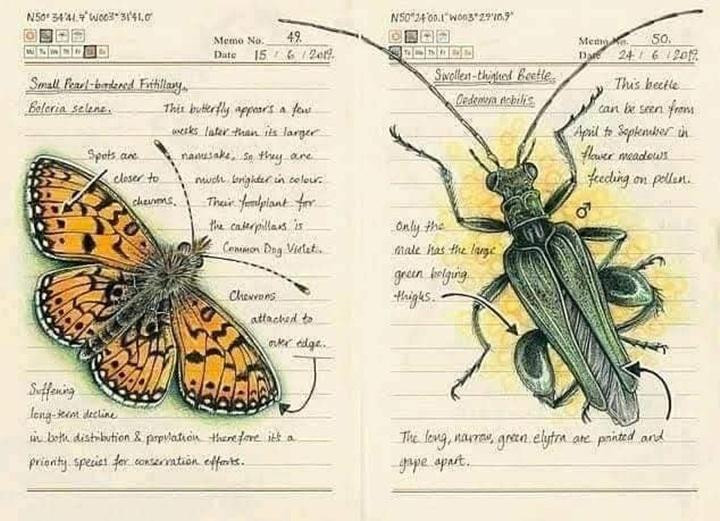 N50° 34'41.4" W003° 31'41.0"
Memo No. 49.
Mo Tu We Th Fr Sa Su
Date 15 / 6 / 2019.
Small Pearl-bordered Fritillary.
Boloria selene.
This butterfly appears a few
weeks later than its larger
namesake, so they are
much brighter in colour.
Their foodplant for
the caterpillars is
Common Dog Violet.
Spots are
closer to
chevrons.
Chevrons
attached to
outer edge.
Suffering
long-term decline
in both distribution & population therefore it's a
priority species for conservation efforts.
N50° 24'00.1" W003° 29'10.9"
Memo No. 50.
Tu We Th Fr Sa Su
Date 24 / 6 / 2019.
Swollen-thighed Beetle.
Oedemera nobilis.
This beetle
can be seen from
April to September in
flower meadows
feeding on pollen.
♂
Only the
male has the large
green bulging
thighs.
The long, narrow, green elytra are pointed and
gape apart.